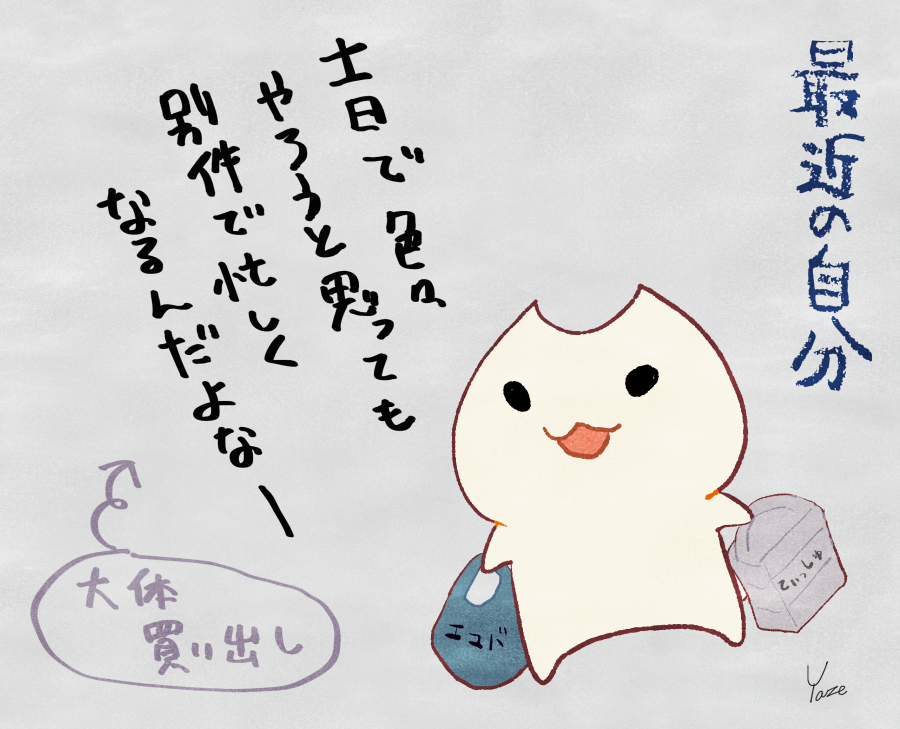 最近の自分
土日で色ロ
やろうと思っても
別件で忙しく
なるんだよなー
大体
買い出し
エコバ
てぃっしゅ
Yaze